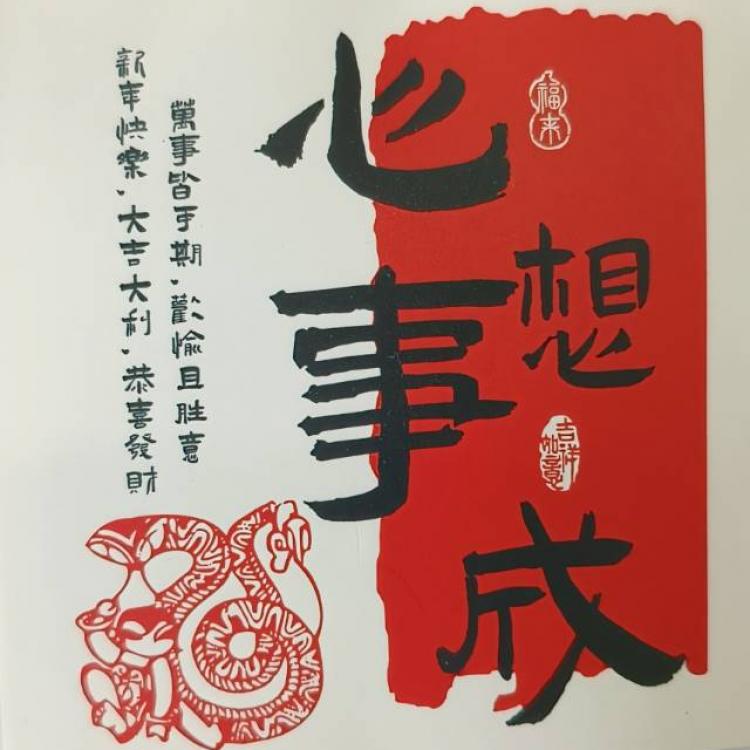 心想事成
福来
吉祥如意
萬事皆于期、歡愉且胜意
新年快樂、大吉大利、恭喜發財